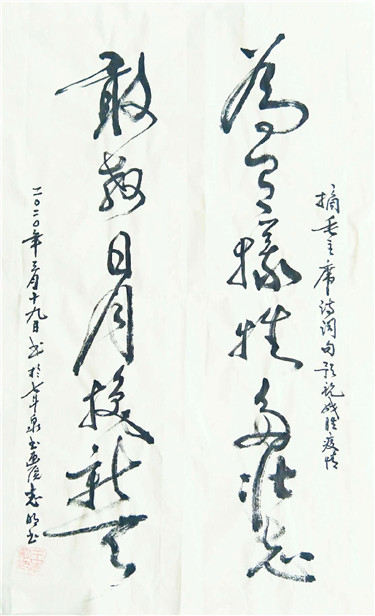 摘毛主席诗词句预祝战胜疫情
为有牺牲多壮志
敢教日月换新天
二〇二〇年三月十九日书于七年泉书画院志明书